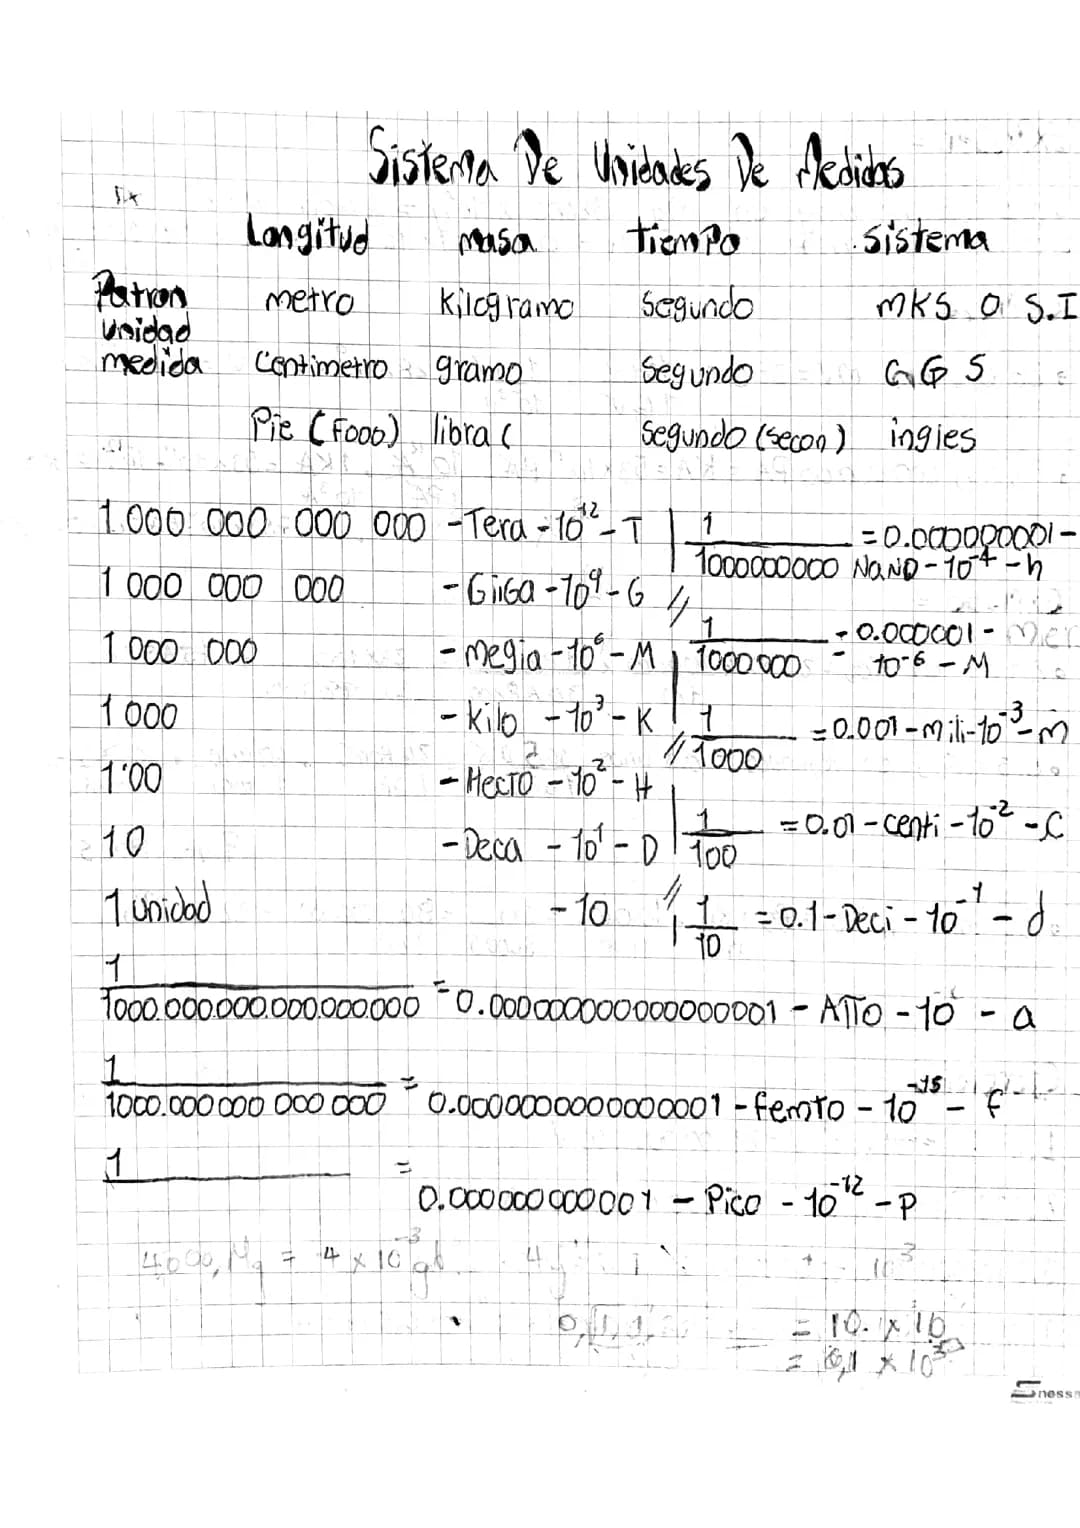 Sistema De Unidades De Medidas
Longitud masa tiempo sistema
Patron metro Kilogramo Segundo MKS O S.I
unidad
medida Centimetro gramo Segundo CGS
Pie (Foob) libra ( Segundo (secon) ingies
1.000 000.000 000 -Tera - 10^12 - T
1 = 0.000000001 -
1000000000 NaNO - 10^-4 - h
1 000 000 000 - Giiga - 10^9 - G //
1 - 0.000001 -
1 000 000 - megia - 10^6 - M
1000000 - 10^-6 - M
1000 - Kilo - 10^3 - K
1 = 0.001 - mili - 10^-3 - m
// 1000
1'00 - Hecto - 10^2 - H
1 = 0.01 - centi - 10^-2 - C
10 - Deca - 10^1 - D
100
1 unidad - 10 //
1 = 0.1 - Deci - 10^-1 - d
10
1
1000.000.000.000.000.000 = 0.000000000000000001 - ATTO - 10 - a
1
1000.000 000 000 000 = 0.000000000000001 - femto - 10^-15 - f
1 =
0.000000000001 - Pico - 10^-12 - P
= 4 x 10^-3
= 10. x 10